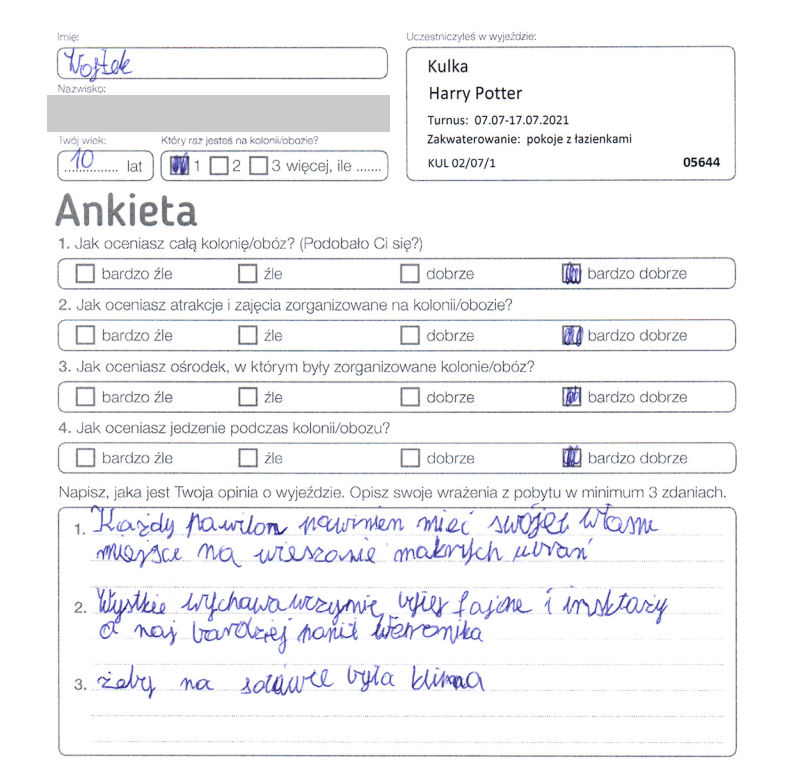 Imię:
Wojtek
Nazwisko:
Twój wiek:
10 lat
Który raz jesteś na kolonii/obozie?
1 2 3 więcej, ile .......
Uczestniczyłeś w wyjeździe:
Kulka
Harry Potter
Turnus: 07.07-17.07.2021
Zakwaterowanie: pokoje z łazienkami
KUL 02/07/1 05644
Ankieta
1. Jak oceniasz całą kolonię/obóz? (Podobało Ci się?)
bardzo źle źle dobrze bardzo dobrze
2. Jak oceniasz atrakcje i zajęcia zorganizowane na kolonii/obozie?
bardzo źle źle dobrze bardzo dobrze
3. Jak oceniasz ośrodek, w którym były zorganizowane kolonie/obóz?
bardzo źle źle dobrze bardzo dobrze
4. Jak oceniasz jedzenie podczas kolonii/obozu?
bardzo źle źle dobrze bardzo dobrze
Napisz, jaka jest Twoja opinia o wyjeździe. Opisz swoje wrażenia z pobytu w minimum 3 zdaniach.
1. Każdy pawilon powinien mieć własne
miejsce na wieszanie mokrych ubrań
2. Wystkie fajne i
a naj bardziej Weronika
3. żeby na była klima